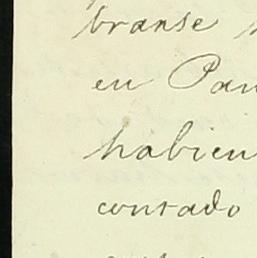 branse
en Pan
habien
contado